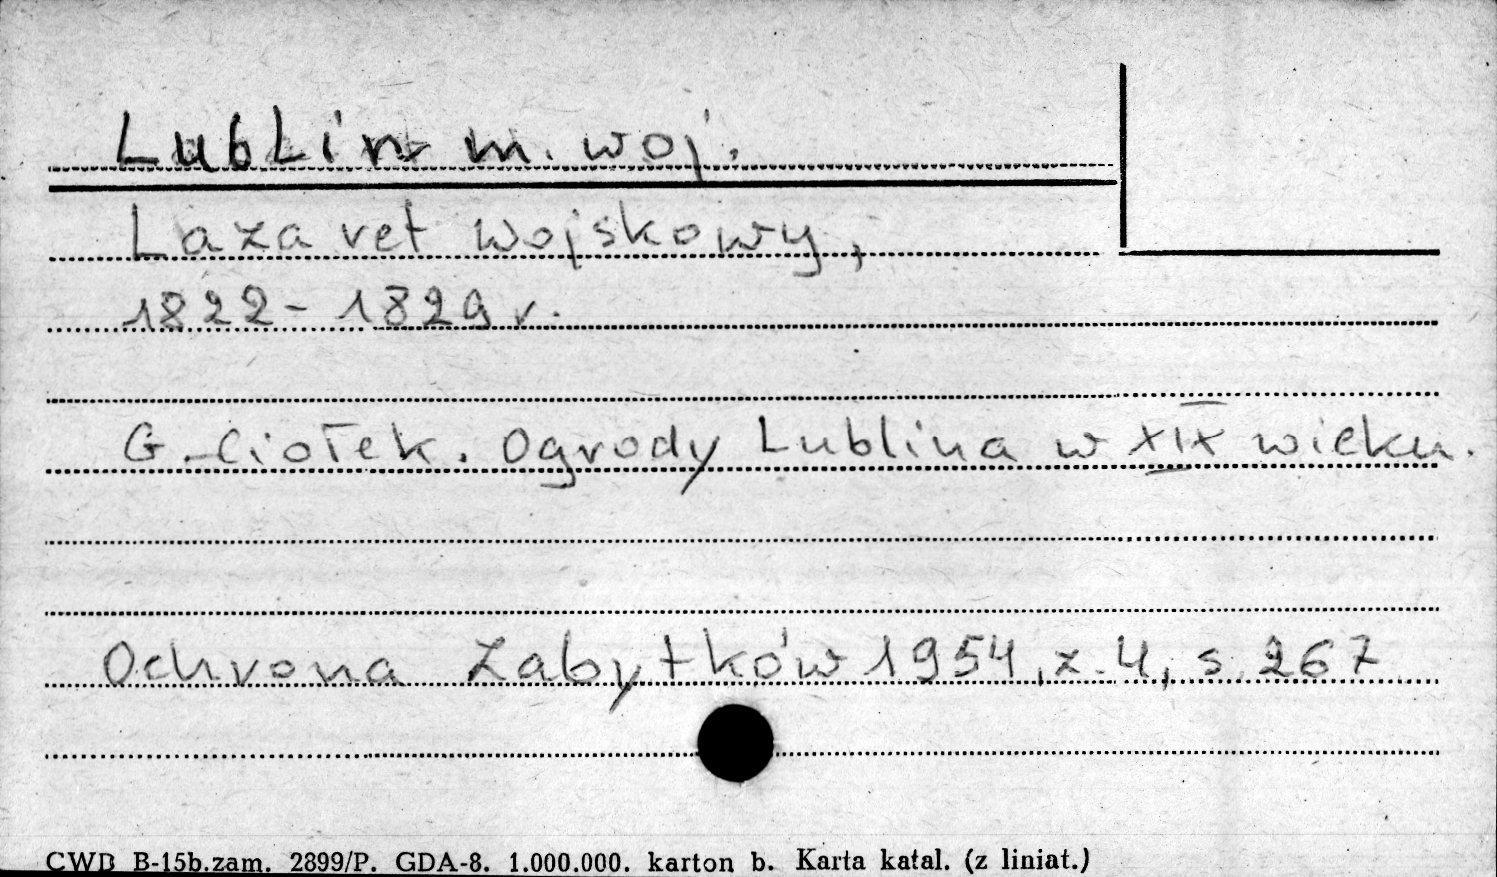 Lublin m. woj.
Lazaret wojskowy,
1822-1829 r.
G. Ciołek. Ogrody Lublina w XIX wieku.
Ochrona Zabytków 1954, z. 4, s. 267
CWD B-15b.zam. 2899/P. GDA-8. 1.000.000. karton b. Karta katal. (z liniat.)